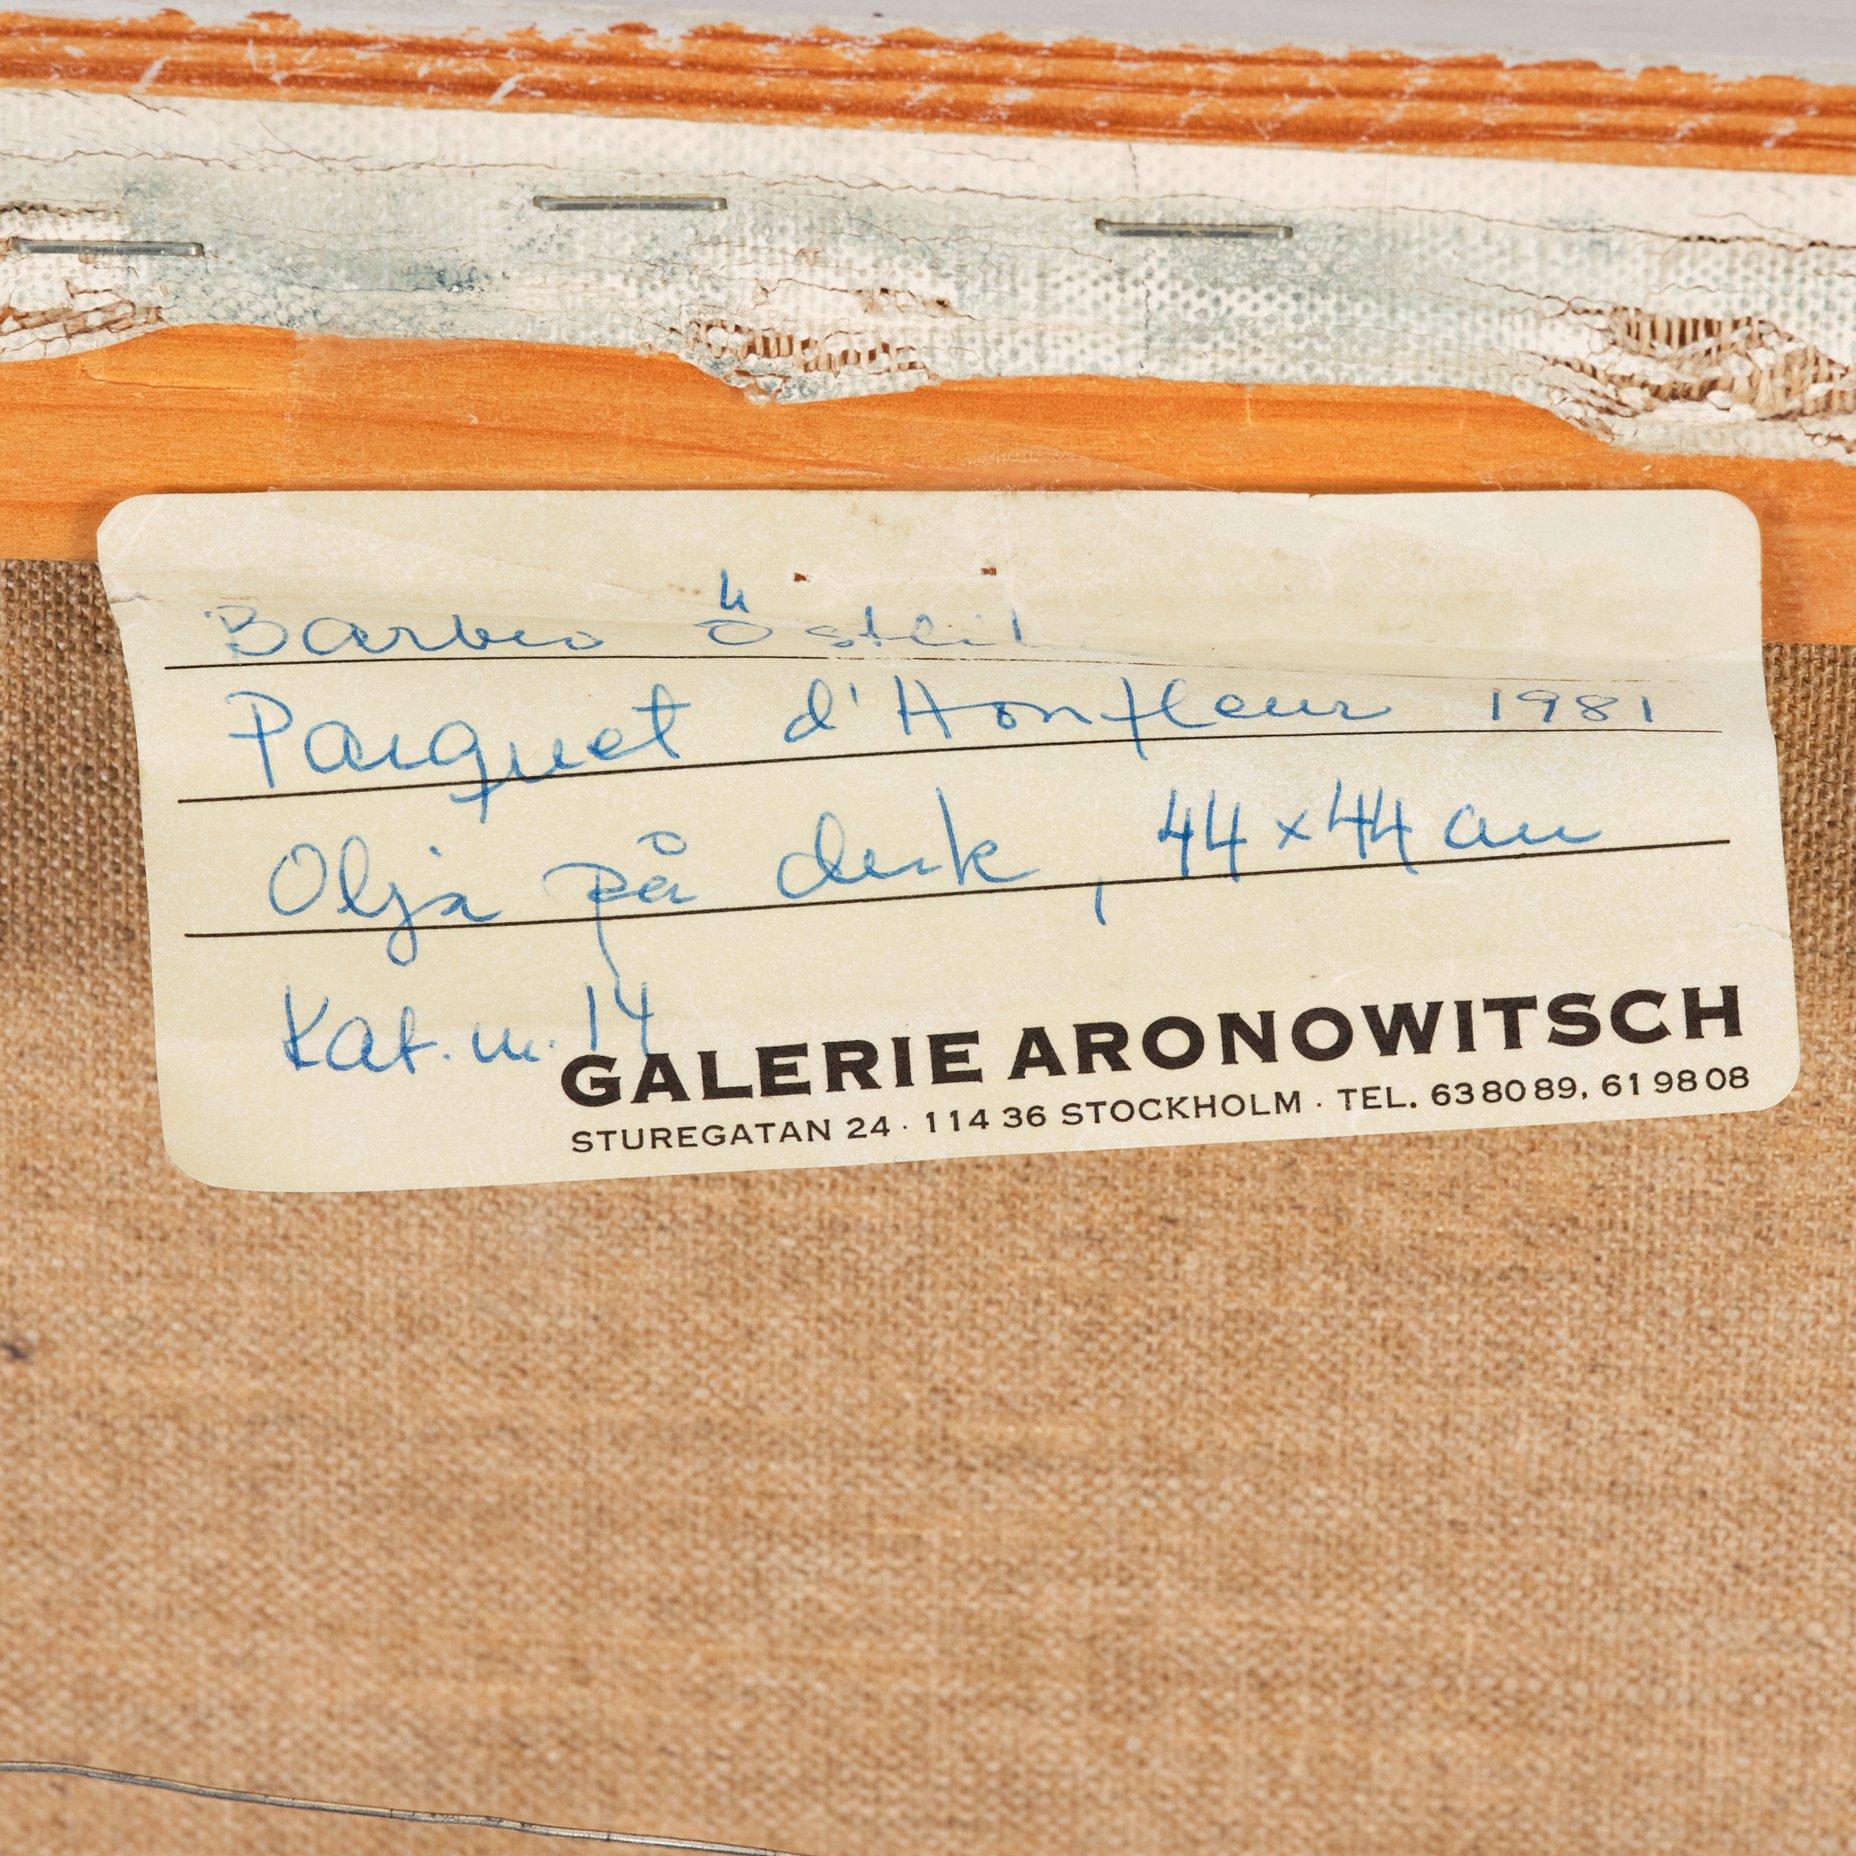 Barbro Östlih
Parquet d'Honfleur 1981
Olja på duk, 44 x 44 cm
Kat. nr. 14
GALERIE ARONOWITSCH
STUREGATAN 24 · 114 36 STOCKHOLM · TEL. 63 80 89, 61 98 08